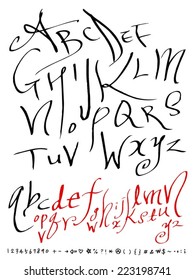 ABCDEF
GHIJKLM
NOPQRS
TUVWXYZ
abcdefghijklmn
opqrstuvwxyz
1234567890
shutterstock
223198741